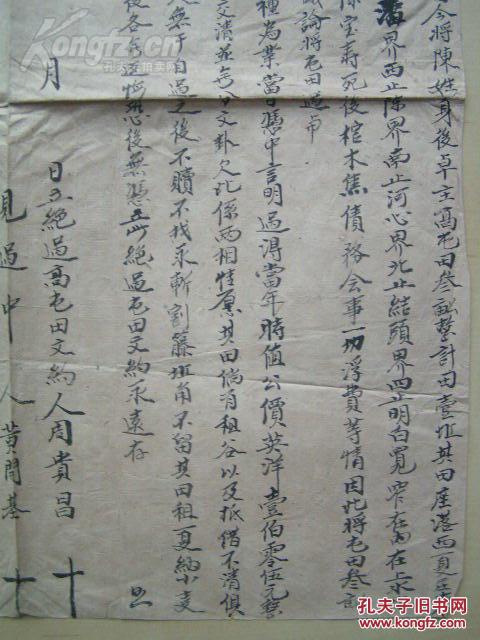 今將陳姓身後卓主高屯田叁畝整計田壹坵其田座落西
界西止陳界南止河心界北止結頭界四止明白寬窄在內在上永
宝壽死後棺木焦債務会事一切浮費等情因此將屯田叁
議論將屯田過
種為業當日憑中言明過淂當年時值公價英洋壹伯零伍元整
文清並無分文掛欠此係兩相情愿其田倘有租谷以及抵借不清俱
無干自過之後不贖不找永斬割籐坵角不留其田租夏納小麦
後各無悔恐後無憑立此絕過屯田文約永遠存
照
月
日立絕過高屯田文約人周貴昌 十
見過中人黃開基 十
孔夫子旧书网
KONGFZ.COM
孔夫子旧书网